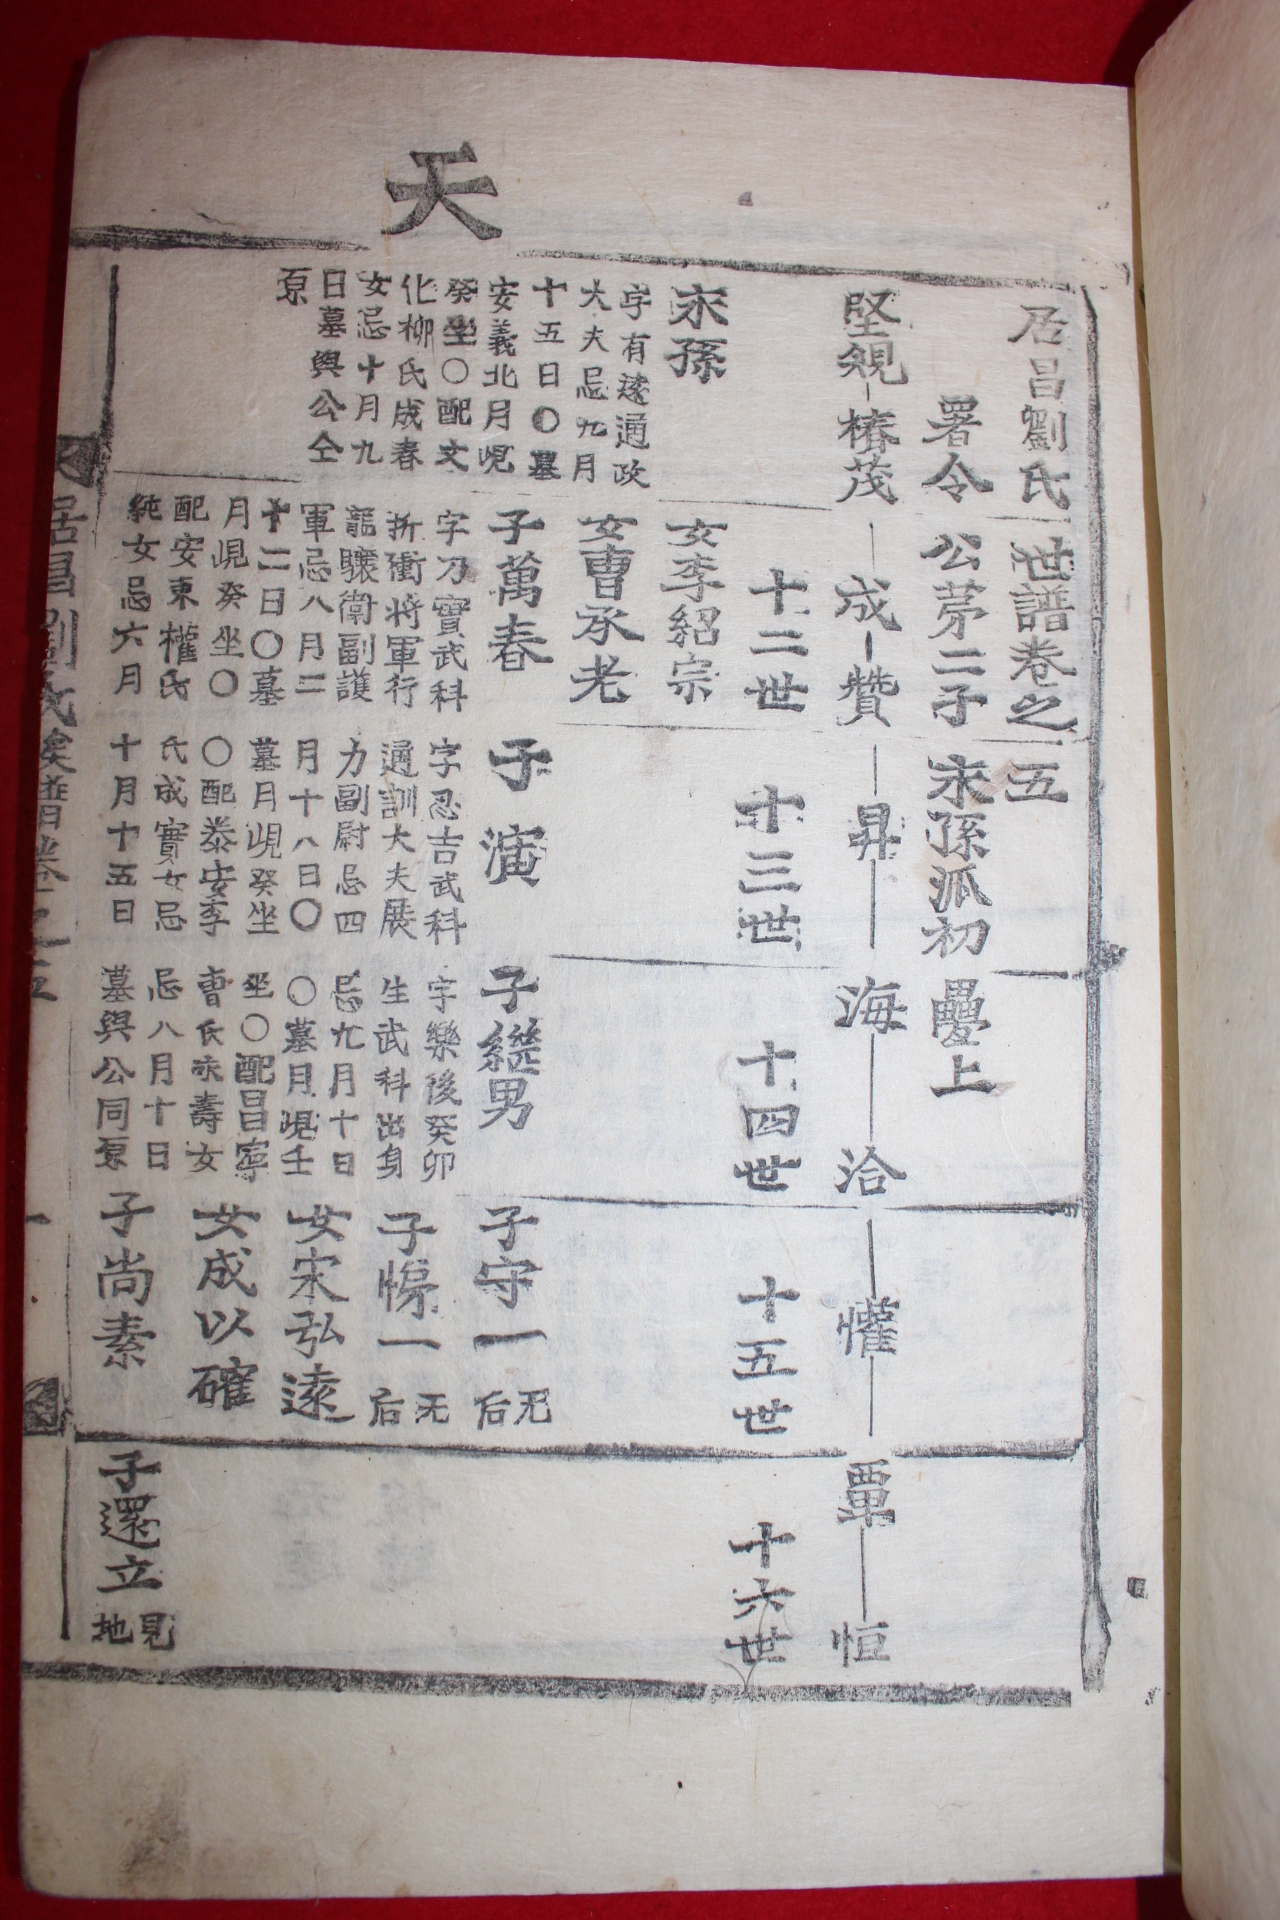 天
居昌劉氏世譜卷之五
署令公苐二子宋孫派初疊上
堅䂓 椿茂 成 贊 昇 海 洽 懽 覃 恒
十二世
十三世
十四世
十五世
十六世
宋孫
字有遂通政
大夫忌九月
十五日〇墓
安義北月峴
癸坐〇配文
化柳氏成春
女忌十月九
日墓與公仝
原
女李紹宗
女曺承老
子萬春
字乃實武科
折衝將軍行
龍驤衛副護
軍忌八月二
十二日〇墓
月峴癸坐〇
配安東權氏
純女忌六月
子演
字忍吉武科
通訓大夫展
力副尉忌四
月十八日〇
墓月峴癸坐
〇配泰安李
氏成實女忌
十月十五日
子繼男
字樂後癸卯
生武科出身
忌九月十日
〇墓月峴壬
坐〇配昌寧
曺氏永壽女
忌八月十日
墓與公同原
子守一 无后
子悌一 无后
女宋弘遠
女成以確
子尚素
子還立 見地
居昌劉氏族譜卷之五 一